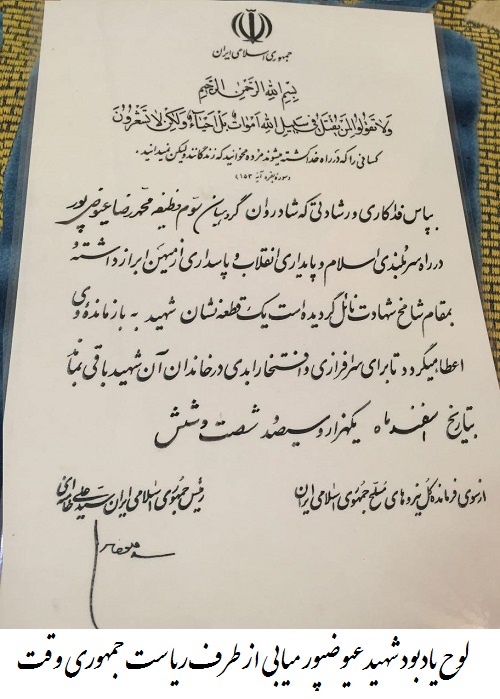 جمهوری اسلامی ایران
بسم الله الرحمن الرحیم
ولا تقولوا لمن یقتل فی سبیل الله اموات بل احیاء ولکن لا تشعرون
کسانی را که در راه خدا کشته میشوند مرده مخوانید که زندگانند ولیکن نمیدانید.
(سوره بقره آیه ۱۵۳)
بپاس فداکاری و رشادتی که شادروان گروهبان سوم وظیفه محمدرضا عیوضی پور
در راه سربلندی اسلام و پایداری انقلاب و پاسداری از میهن ابراز داشته و
بمقام شامخ شهادت نائل گردیده است یک قطعه نشان شهید به بازمانده وی
اعطا میگردد تا برای سرافرازی و افتخار ابدی در خاندان آن شهید باقی بماند
بتاریخ اسفند ماه یکهزار و سیصد و شصت و شش
از سوی فرمانده کل نیروهای مسلح جمهوری اسلامی ایران
رئیس جمهوری اسلامی ایران سید علی خامنه‌ای
لوح یادبود شهید عیوضپور میابی از طرف ریاست جمهوری وقت